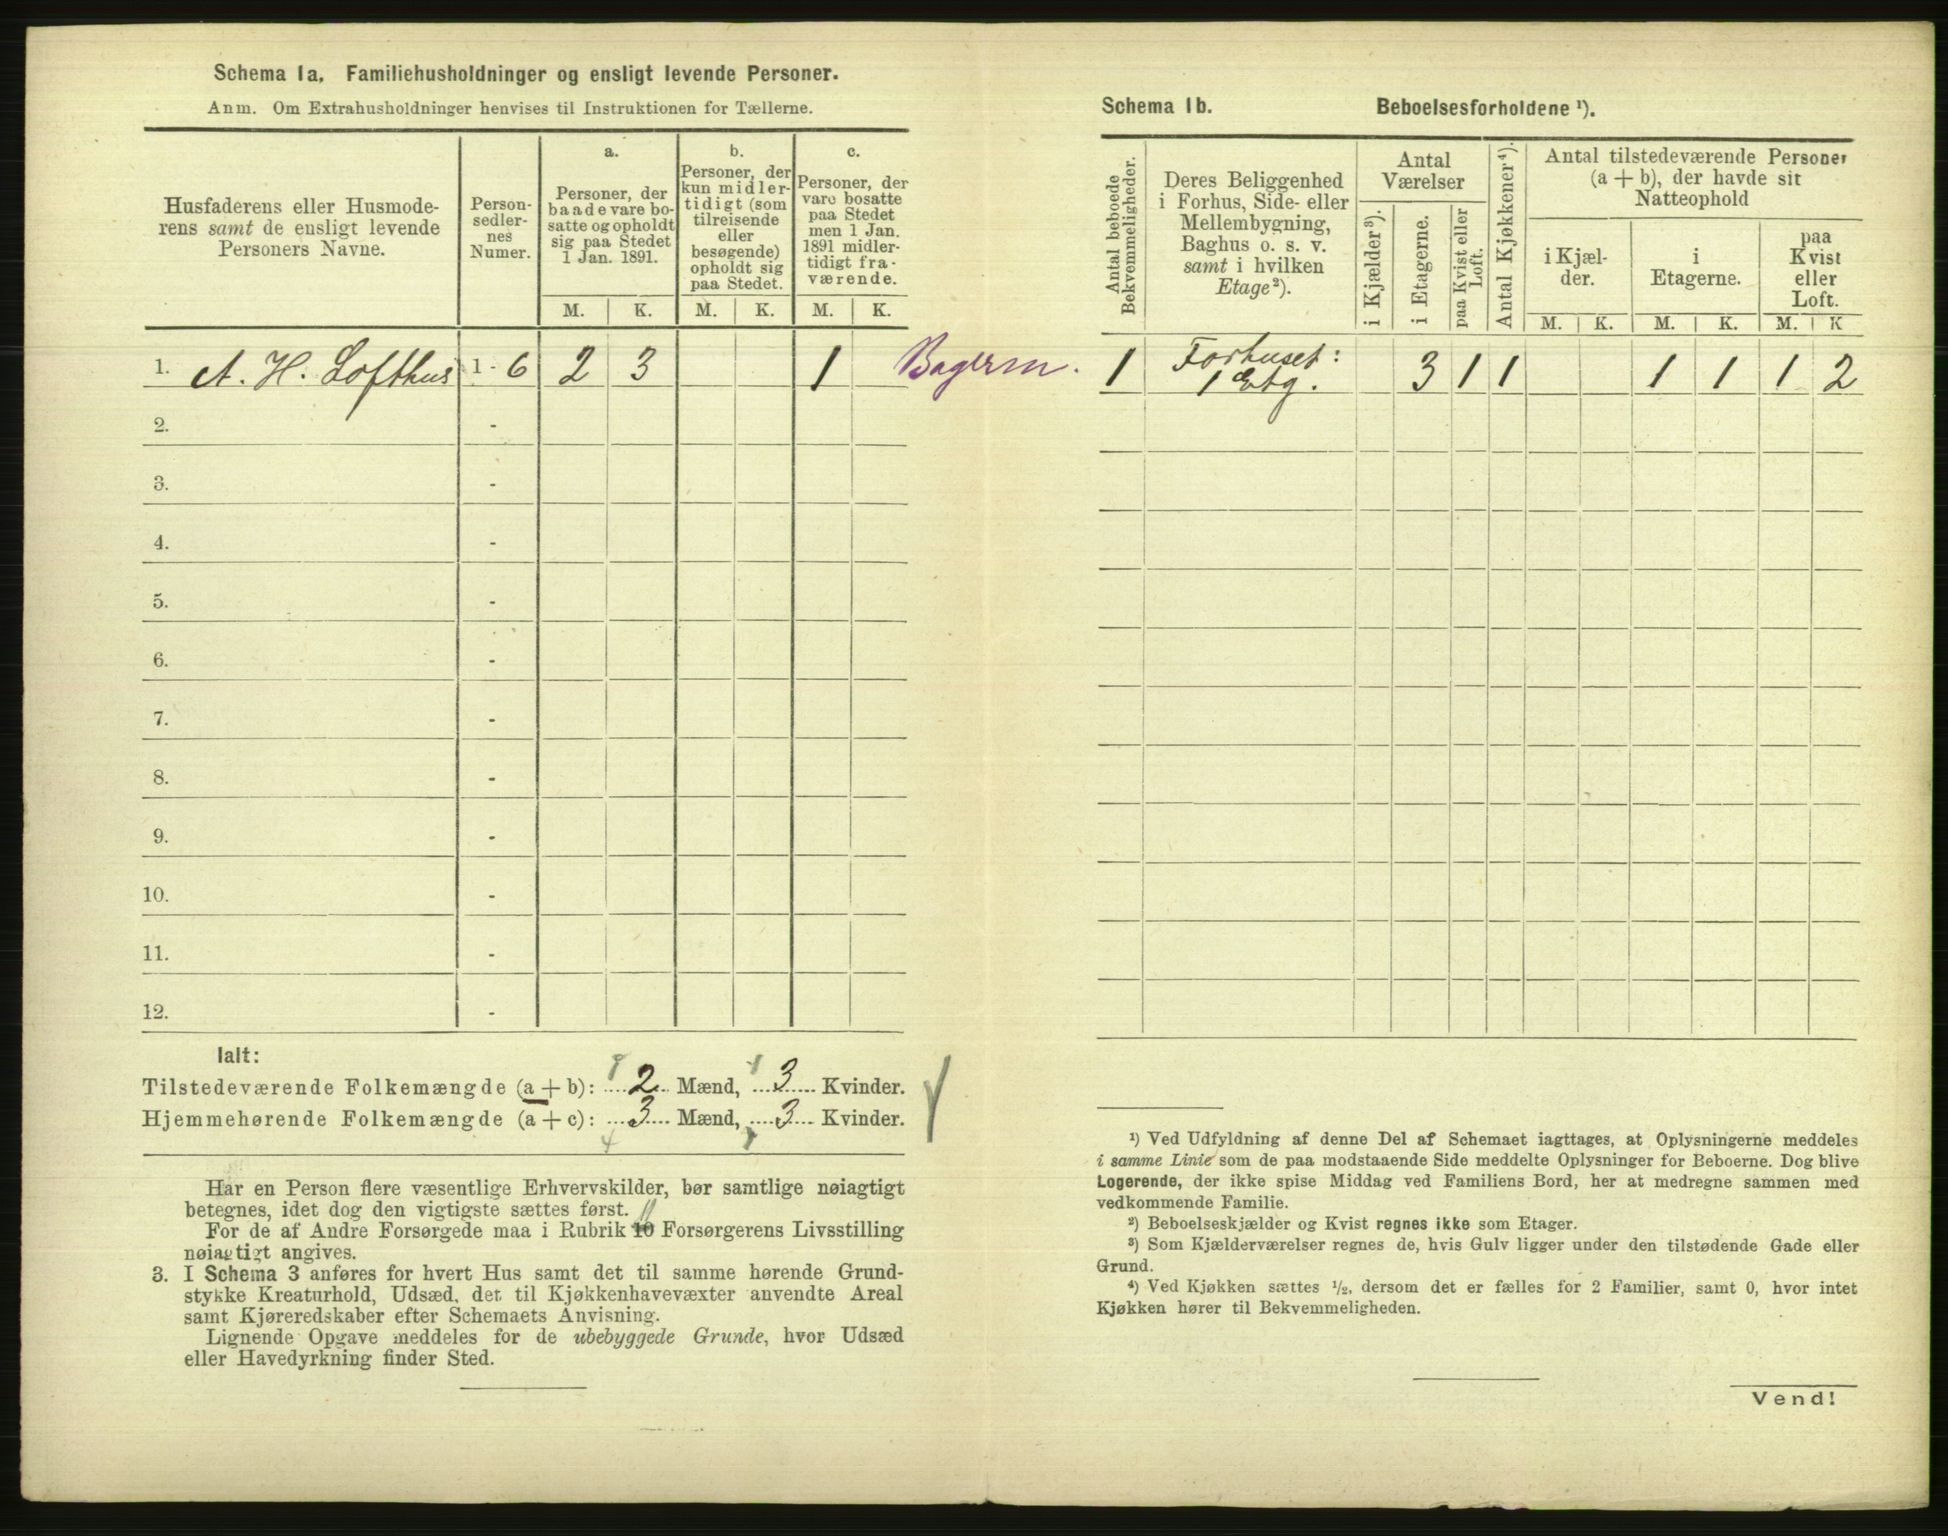 Schema 1a. Familiehusholdninger og ensligt levende Personer.
Anm. Om Extrahusholdninger henvises til Instruktionen for Tællerne.
Husfaderens eller Husmode-
rens samt de ensligt levende
Personers Navne.
Person-
sedler-
nes
Numer.
a.
Personer, der
baade vare bo-
satte og opholdt
sig paa Stedet
1 Jan. 1891.
b.
Personer, der
kun midler-
tidigt (som
tilreisende
eller
besøgende)
opholdt sig
paa Stedet.
c.
Personer, der
vare bosatte
paa Stedet
men 1 Jan.
1891 midler-
tidigt fra-
værende.
M. K. M. K. M. K.
1. A. H. Lofthus 1 - 6 2 3 1
2. -
3. -
4. -
5. -
6. -
7. -
8. -
9. -
10. -
11. -
12. -
Ialt:
Tilstedeværende Folkemængde (a + b): 2 Mænd, 3 Kvinder.
Hjemmehørende Folkemængde (a + c): 3 Mænd, 3 Kvinder.
Har en Person flere væsentlige Erhvervskilder, bør samtlige nøiagtigt
betegnes, idet dog den vigtigste sættes først.
For de af Andre Forsørgede maa i Rubrik 10 11 Forsørgerens Livsstilling
nøiagtigt angives.
3. I Schema 3 anføres for hvert Hus samt det til samme hørende Grund-
stykke Kreaturhold, Udsæd, det til Kjøkkenhavevæxter anvendte Areal
samt Kjøreredskaber efter Schemaets Anvisning.
Lignende Opgave meddeles for de ubebyggede Grunde, hvor Udsæd
eller Havedyrkning finder Sted.
Schema 1b. Beboelsesforholdene ¹).
Antal beboede
Bekvemmeligheder.
Deres Beliggenhed
i Forhus, Side- eller
Mellembygning,
Baghus o. s. v.
samt i hvilken
Etage²).
Antal
Værelser
i Kjælder³).
i Etagerne.
paa Kvist eller
Loft.
Antal Kjøkkener⁴).
Antal tilstedeværende Personer
(a + b), der havde sit
Natteophold
i Kjæl-
der.
i
Etagerne.
paa
Kvist
eller
Loft.
M. K. M. K. M. K
1 Forhuset: 3 1 1 1 1 1 2
1 Etg.
¹) Ved Udfyldning af denne Del af Schemaet iagttages, at Oplysningerne meddeles
i samme Linie som de paa modstaaende Side meddelte Oplysninger for Beboerne. Dog blive
Logerende, der ikke spise Middag ved Familiens Bord, her at medregne sammen med
vedkommende Familie.
²) Beboelseskjælder og Kvist regnes ikke som Etager.
³) Som Kjælderværelser regnes de, hvis Gulv ligger under den tilstødende Gade eller
Grund.
⁴) Ved Kjøkken sættes ½, dersom det er fælles for 2 Familier, samt 0, hvor intet
Kjøkken hører til Bekvemmeligheden.
Vend!